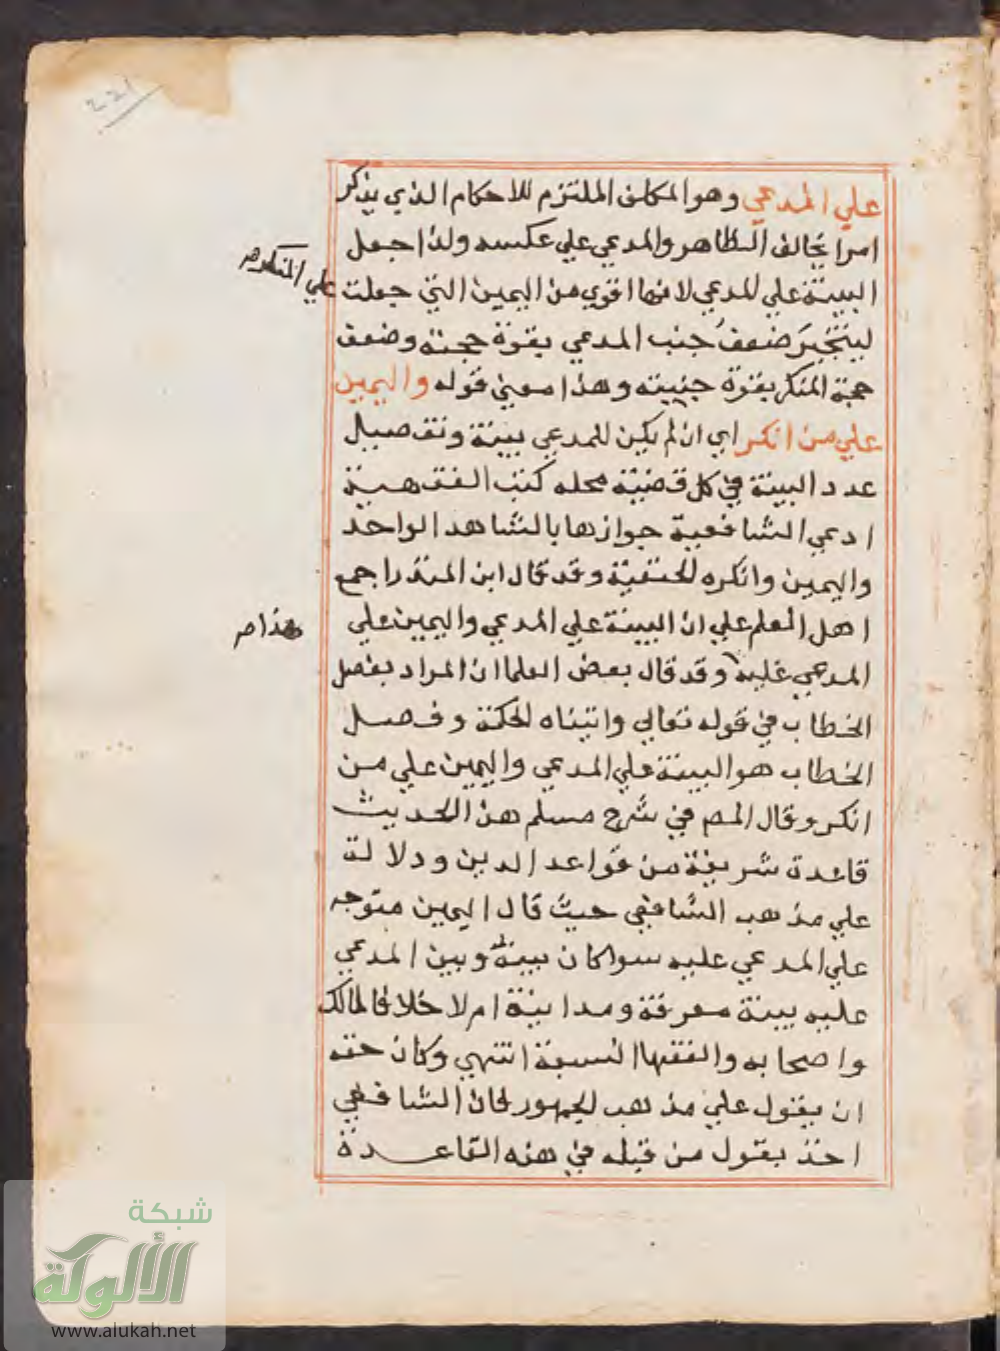 ٢٢١
علي المدعي وهو المكلف الملتزم للاحكام الذي يذكر
امرا يخالف الظاهر والمدعي علي عكسه ولذا جعل
البينة علي المدعي لانها اقوي من اليمين التي جعلت
علي المنكر صح
لينجبر ضعف جنب المدعي بقوة حجته وضعف
حجة المنكر بقوة جنبيته وهذا معني قوله واليمين
علي من انكر اي ان لم يكن للمدعي بينة وتفصيل
عدد البينة في كل قضية محله كتب الفقهية
ادعي الشافعية جوازها بالشاهد الواحد
واليمين وانكره الحنفية وقد قال ابن المنذر اجمع
اهل العلم علي ان البينة علي المدعي واليمين علي
هذا صر
المدعي عليه وقد قال بعض العلما ان المراد بفصل
الخطاب في قوله تعالي واتيناه الحكمة وفصل
الخطاب هو البينة علي المدعي واليمين علي من
انكر وقال المص في شرح مسلم هذا الحديث
قاعدة شريفة من قواعد الدين ودلالة
علي مذهب الشافعي حيث قال اليمين متوجه
علي المدعي عليه سواكان بينه وبين المدعي
عليه بينة معرفة ومداينة ام لا خلافا لمالك
واصحابه والفقها السبعة انتهي وكان حقه
ان يقول علي مذهب الجمهور لان الشافعي
اخذ بقول من قبله في هذه القاعدة
شبكة
الألوكة
www.alukah.net